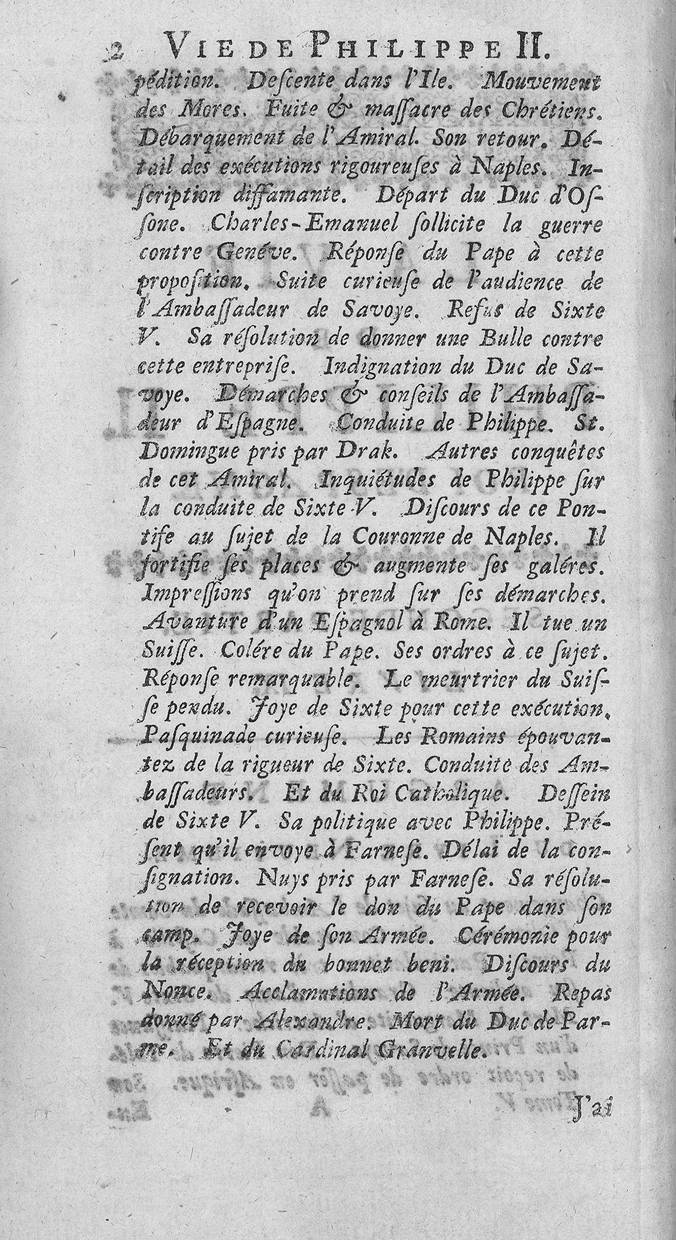 2 VIE DE PHILIPPE II.
pédition. Deſcente dans l'Ile. Mouvement
des Mores. Fuite & maſſacre des Chrétiens.
Débarquement de l'Amiral. Son retour. Dé-
tail des exécutions rigoureuſes à Naples. In-
ſcription diffamante. Départ du Duc d'Oſ-
ſone. Charles-Emanuel ſollicite la guerre
contre Genéve. Réponſe du Pape à cette
propoſition. Suite curieuſe de l'audience de
l'Ambaſſadeur de Savoye. Refus de Sixte
V. Sa réſolution de donner une Bulle contre
cette entrepriſe. Indignation du Duc de Sa-
voye. Démarches & conſeils de l'Ambaſſa-
deur d'Eſpagne. Conduite de Philippe. St.
Domingue pris par Drak. Autres conquêtes
de cet Amiral. Inquiétudes de Philippe ſur
la conduite de Sixte V. Diſcours de ce Pon-
tife au ſujet de la Couronne de Naples. Il
fortifie ſes places & augmente ſes galéres.
Impreſſions qu'on prend ſur ſes démarches.
Avanture d'un Eſpagnol à Rome. Il tue un
Suiſſe. Colére du Pape. Ses ordres à ce ſujet.
Réponſe remarquable. Le meurtrier du Suiſ-
ſe pendu. Joye de Sixte pour cette exécution.
Paſquinade curieuſe. Les Romains épouvan-
tez de la rigueur de Sixte. Conduite des Am-
baſſadeurs. Et du Roi Catholique. Deſſein
de Sixte V. Sa politique avec Philippe. Pré-
ſent qu'il envoye à Farneſe. Délai de la con-
ſignation. Nuys pris par Farneſe. Sa réſolu-
tion de recevoir le don du Pape dans ſon
camp. Joye de ſon Armée. Cérémonie pour
la réception du bonnet beni. Diſcours du
Nonce. Acclamations de l'Armée. Repas
donné par Alexandre. Mort du Duc de Par-
me. Et du Cardinal Granvelle.
J'ai